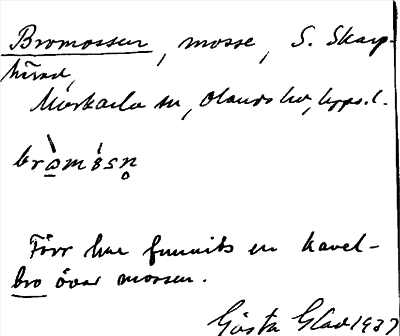 Bromossen, mosse, S. Skarp-
hirad,
Morkarla sn, Olands hd, Upps. l.
bròmósn̥
Förr har funnits en kavel-
bro över mossen.
Gösta Glad 1937